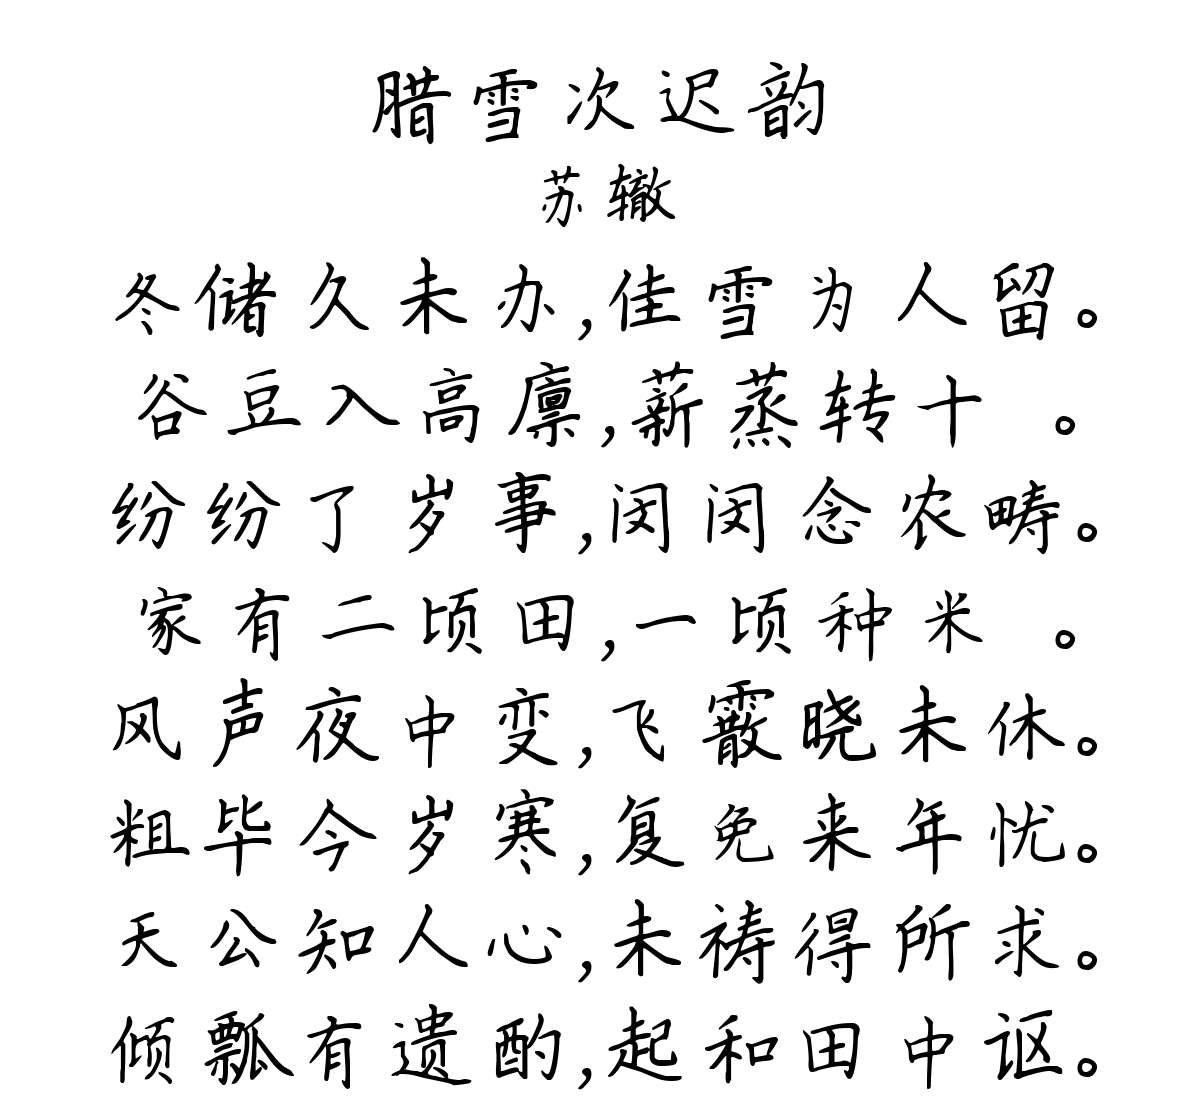 腊雪次迟韵
苏辙
冬储久未办,佳雪为人留。
谷豆入高廪,薪蒸转十 。
纷纷了岁事,闵闵念农畴。
家有二顷田,一顷种米 。
风声夜中变,飞霰晓未休。
粗毕今岁寒,复免来年忧。
天公知人心,未祷得所求。
倾瓢有遗酌,起和田中讴。